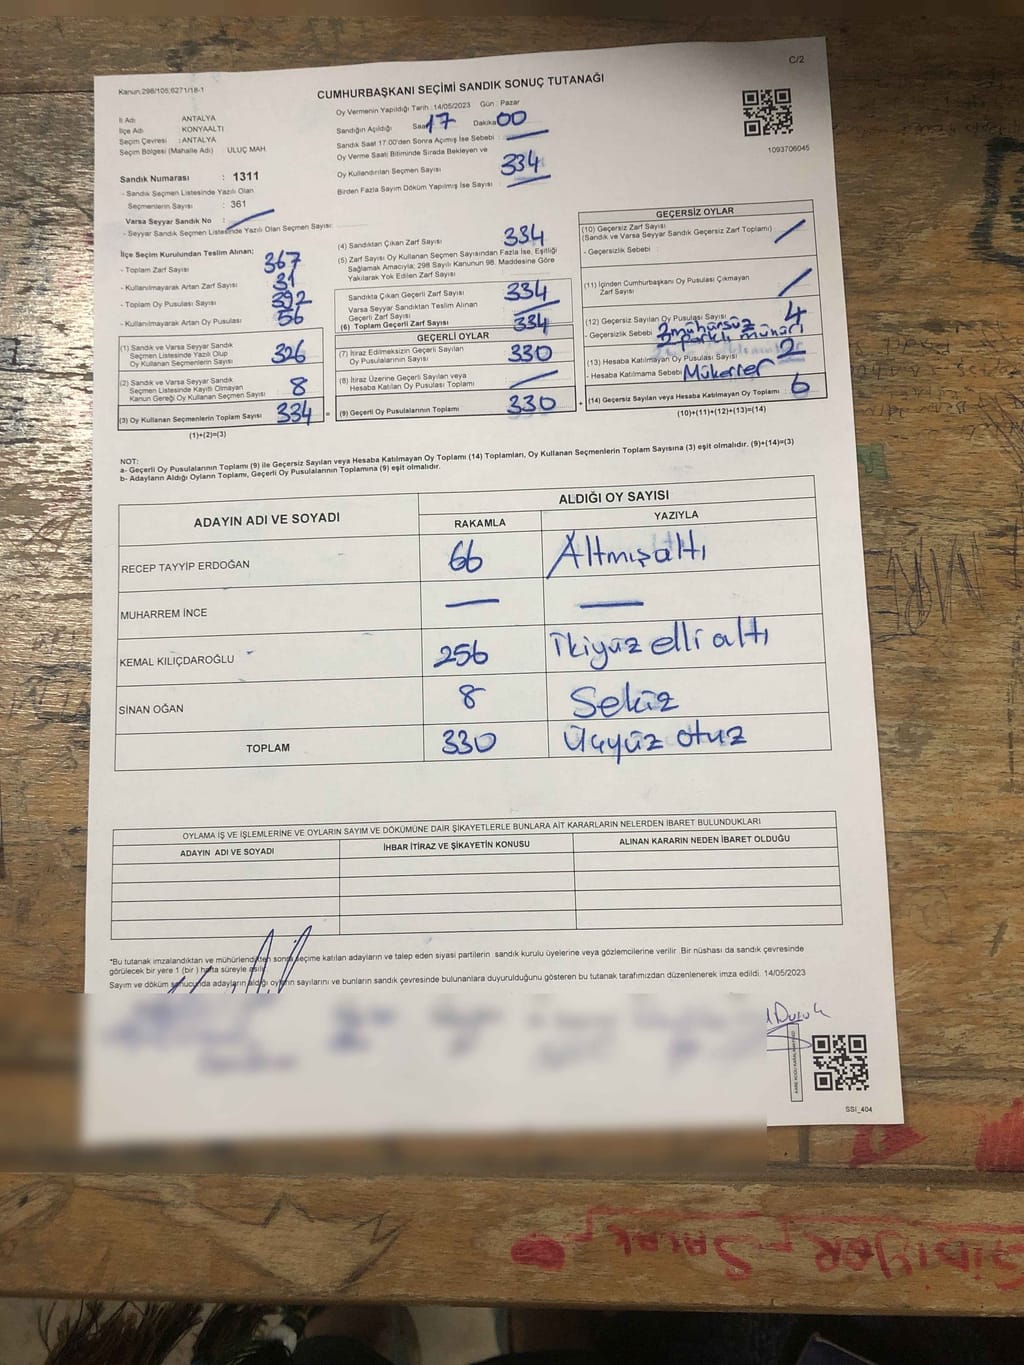 C/2
Kanun:298/105;6271/18-1
CUMHURBAŞKANI SEÇİMİ SANDIK SONUÇ TUTANAĞI
İl Adı ANTALYA
İlçe Adı KONYAALTI
Seçim Çevresi : ANTALYA
Seçim Bölgesi (Mahalle Adı) ULUÇ MAH.
Oy Vermenin Yapıldığı Tarih : 14/05/2023 Gün : Pazar
Sandığın Açıldığı Saat 17 Dakika 00
Sandık Saat 17:00'den Sonra Açımış İse Sebebi :
Oy Verme Saati Bitiminde Sırada Bekleyen ve
Oy Kullandırılan Seçmen Sayısı 334
Birden Fazla Sayım Döküm Yapılmış İse Sayısı :
1093706045
Sandık Numarası : 1311
- Sandık Seçmen Listesinde Yazılı Olan
Seçmenlerin Sayısı : 361
Varsa Seyyar Sandık No :
- Seyyar Sandık Seçmen Listesinde Yazılı Olan Seçmen Sayısı:
İlçe Seçim Kurulundan Teslim Alınan:
- Toplam Zarf Sayısı 367
- Kullanılmayarak Artan Zarf Sayısı 31
- Toplam Oy Pusulası Sayısı 392
- Kullanılmayarak Artan Oy Pusulası 56
(1) Sandık ve Varsa Seyyar Sandık
Seçmen Listesinde Yazılı Olup
Oy Kullanan Seçmenlerin Sayısı 326
(2) Sandık ve Varsa Seyyar Sandık
Seçmen Listesinde Kayıtlı Olmayan
Kanun Gereği Oy Kullanan Seçmen Sayısı 8
(3) Oy Kullanan Seçmenlerin Toplam Sayısı 334 =
(1)+(2)=(3)
(4) Sandıktan Çıkan Zarf Sayısı 334
(5) Zarf Sayısı Oy Kullanan Seçmen Sayısından Fazla İse, Eşitliği
Sağlamak Amacıyla; 298 Sayılı Kanunun 98. Maddesine Göre
Yakılarak Yok Edilen Zarf Sayısı
Sandıkta Çıkan Geçerli Zarf Sayısı 334
Varsa Seyyar Sandıktan Teslim Alınan
Geçerli Zarf Sayısı
(6) Toplam Geçerli Zarf Sayısı 334
GEÇERLİ OYLAR
(7) İtiraz Edilmeksizin Geçerli Sayılan
Oy Pusulalarının Sayısı 330
(8) İtiraz Üzerine Geçerli Sayılan veya
Hesaba Katılan Oy Pusulası Toplamı
(9) Geçerli Oy Pusulalarının Toplamı 330 +
GEÇERSİZ OYLAR
(10) Geçersiz Zarf Sayısı
(Sandık ve Varsa Seyyar Sandık Geçersiz Zarf Toplamı)
- Geçersizlik Sebebi
(11) İçinden Cumhurbaşkanı Oy Pusulası Çıkmayan
Zarf Sayısı
(12) Geçersiz Sayılan Oy Pusulası Sayısı 4
- Geçersizlik Sebebi mühürsüz
(13) Hesaba Katılmayan Oy Pusulası Sayısı 2
- Hesaba Katılmama Sebebi Mükerrer
(14) Geçersiz Sayılan veya Hesaba Katılmayan Oy Toplamı 6
(10)+(11)+(12)+(13)=(14)
NOT:
a- Geçerli Oy Pusulalarının Toplamı (9) ile Geçersiz Sayılan veya Hesaba Katılmayan Oy Toplamı (14) Toplamları, Oy Kullanan Seçmenlerin Toplam Sayısına (3) eşit olmalıdır. (9)+(14)=(3)
b- Adayların Aldığı Oyların Toplamı, Geçerli Oy Pusulalarının Toplamına (9) eşit olmalıdır.
ADAYIN ADI VE SOYADI
ALDIĞI OY SAYISI
RAKAMLA YAZIYLA
RECEP TAYYİP ERDOĞAN 66 Altmışaltı
MUHARREM İNCE
KEMAL KILIÇDAROĞLU 256 İkiyüz elli altı
SİNAN OĞAN 8 Sekiz
TOPLAM 330 Üçyüz otuz
OYLAMA İŞ VE İŞLEMLERİNE VE OYLARIN SAYIM VE DÖKÜMÜNE DAİR ŞİKAYETLERLE BUNLARA AİT KARARLARIN NELERDEN İBARET BULUNDUKLARI
ADAYIN ADI VE SOYADI İHBAR İTİRAZ VE ŞİKAYETİN KONUSU ALINAN KARARIN NEDEN İBARET OLDUĞU
*Bu tutanak imzalandıktan ve mühürlendikten sonra seçime katılan adayların ve talep eden siyasi partilerin sandık kurulu üyelerine veya gözlemcilerine verilir .Bir nüshası da sandık çevresinde
görülecek bir yere 1 (bir ) hafta süreyle asılır.
Sayım ve döküm sonucunda adayların aldığı oyların sayılarını ve bunların sandık çevresinde bulunanlara duyurulduğunu gösteren bu tutanak tarafımızdan düzenlenerek imza edildi. 14/05/2023
SSI_404